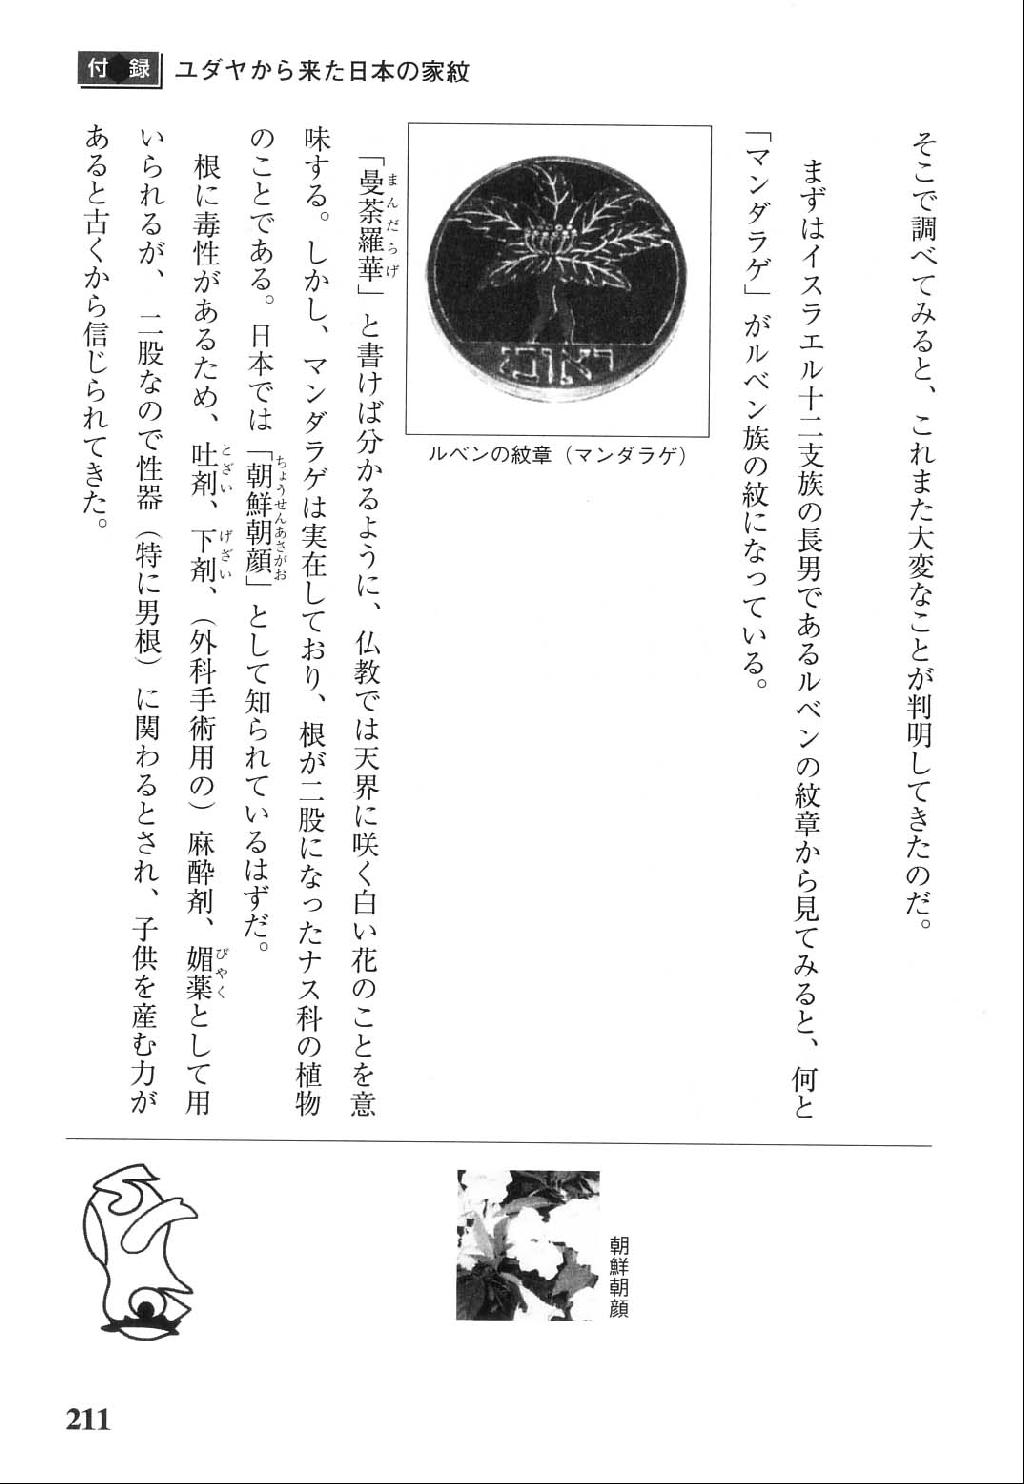 付録 ユダヤから来た日本の家紋
そこで調べてみると、これまた大変なことが判明してきたのだ。
まずはイスラエル十二支族の長男であるルベンの紋章から見てみると、何と
「マンダラゲ」がルベン族の紋になっている。
ראובן
ルベンの紋章（マンダラゲ）
「曼荼羅華」と書けば分かるように、仏教では天界に咲く白い花のことを意
まんだらげ
味する。しかし、マンダラゲは実在しており、根が二股になったナス科の植物
のことである。日本では「朝鮮朝顔」として知られているはずだ。
ちょうせんあさがお
根に毒性があるため、吐剤、下剤、（外科手術用の）麻酔剤、媚薬として用
とざい げざい びやく
いられるが、二股なので性器（特に男根）に関わるとされ、子供を産む力が
あると古くから信じられてきた。
朝鮮朝顔
211